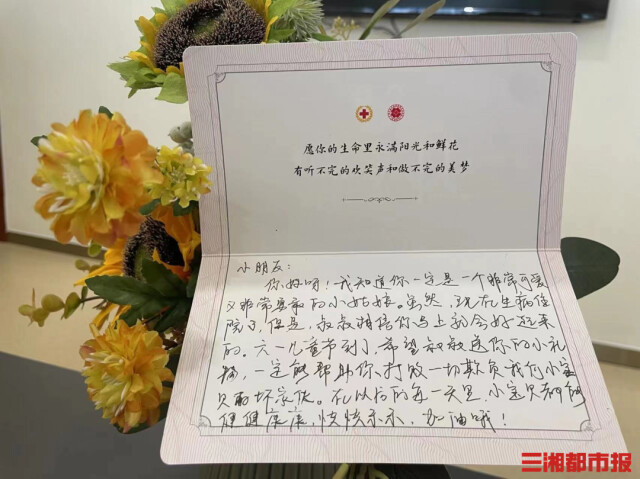 愿你的生命里永满阳光和鲜花
有听不完的欢笑声和做不完的美梦
小朋友：
你好呀！我知道你一定是一个非常可爱
又非常勇敢的小姑娘。虽然，现在生病住
院了，但是，叔叔相信你马上就会好起来
的。六一儿童节到了，希望叔叔送你的小礼
物，一定能帮助你，打败一切欺负我们小宝
贝的坏家伙。在以后的每一天里，小宝贝都能
健健康康，快快乐乐，加油哦！
三湘都市报